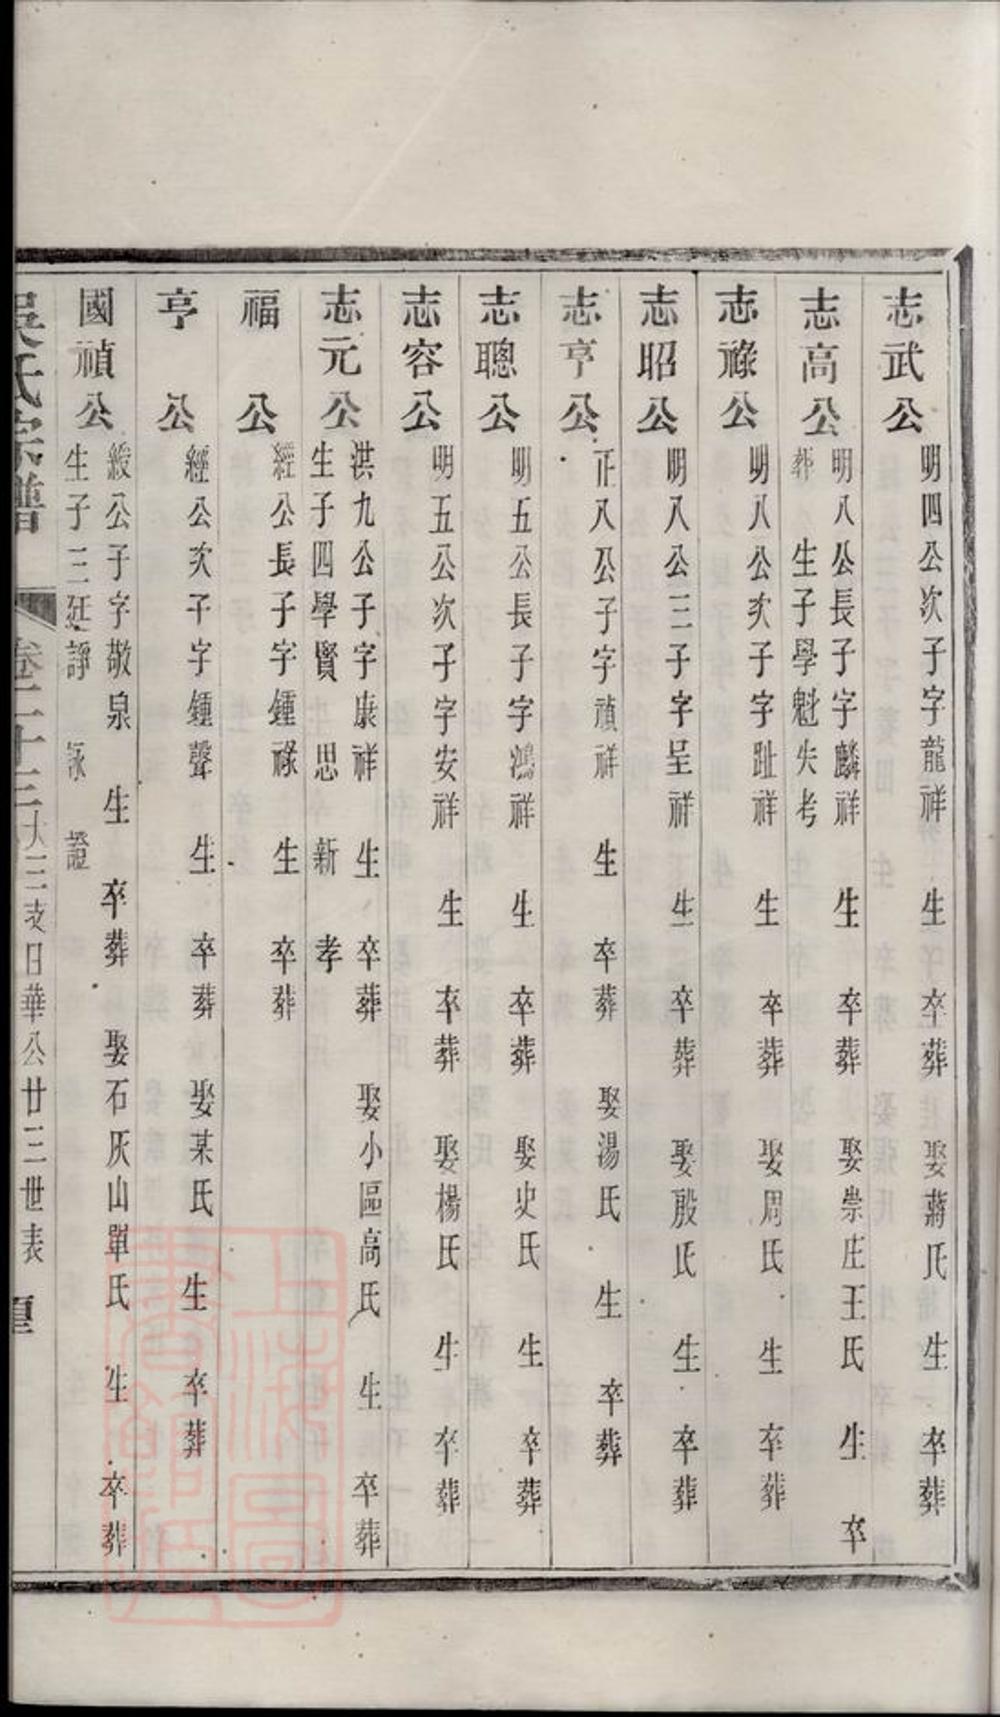 志武公 明四公次子字龍祥 生 卒葬 娶蔣氏 生 卒葬
志高公 明八公長子字麟祥 生 卒葬 娶崇庄王氏 生 卒
葬 生子學魁失考
志祿公 明八公次子字趾祥 生 卒葬 娶周氏 生 卒葬
志昭公 明八公三子字呈祥 生 卒葬 娶殷氏 生 卒葬
志亨公 正八公子字禎祥 生 卒葬 娶湯氏 生 卒葬
志聰公 明五公長子字鴻祥 生 卒葬 娶史氏 生 卒葬
志容公 明五公次子字安祥 生 卒葬 娶楊氏 生 卒葬
志元公 洪九公子字康祥 生 卒葬 娶小區高氏 生 卒葬
生子四學賢 思 新 孝
福公 經公長子字鍾祿 生 卒葬
亨公 經公次子字鍾聲 生 卒葬 娶某氏 生 卒葬
國禎公 綬公子字敬泉 生 卒葬 娶石灰山單氏 生 卒葬
生子三廷諍 詠 證
吳氏宗譜 卷二十三大三支日華公廿三世表